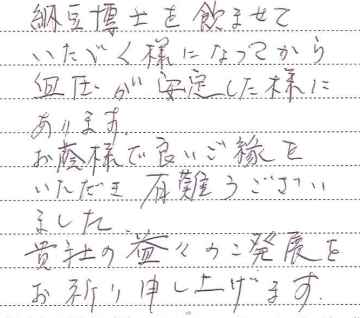 納豆博士を飲ませて
いただく様になってから
血圧が安定した様に
あります.
お蔭様で良いご縁を
いただき有難うござい
ました.
貴社の益々のご発展を
お祈り申し上げます.